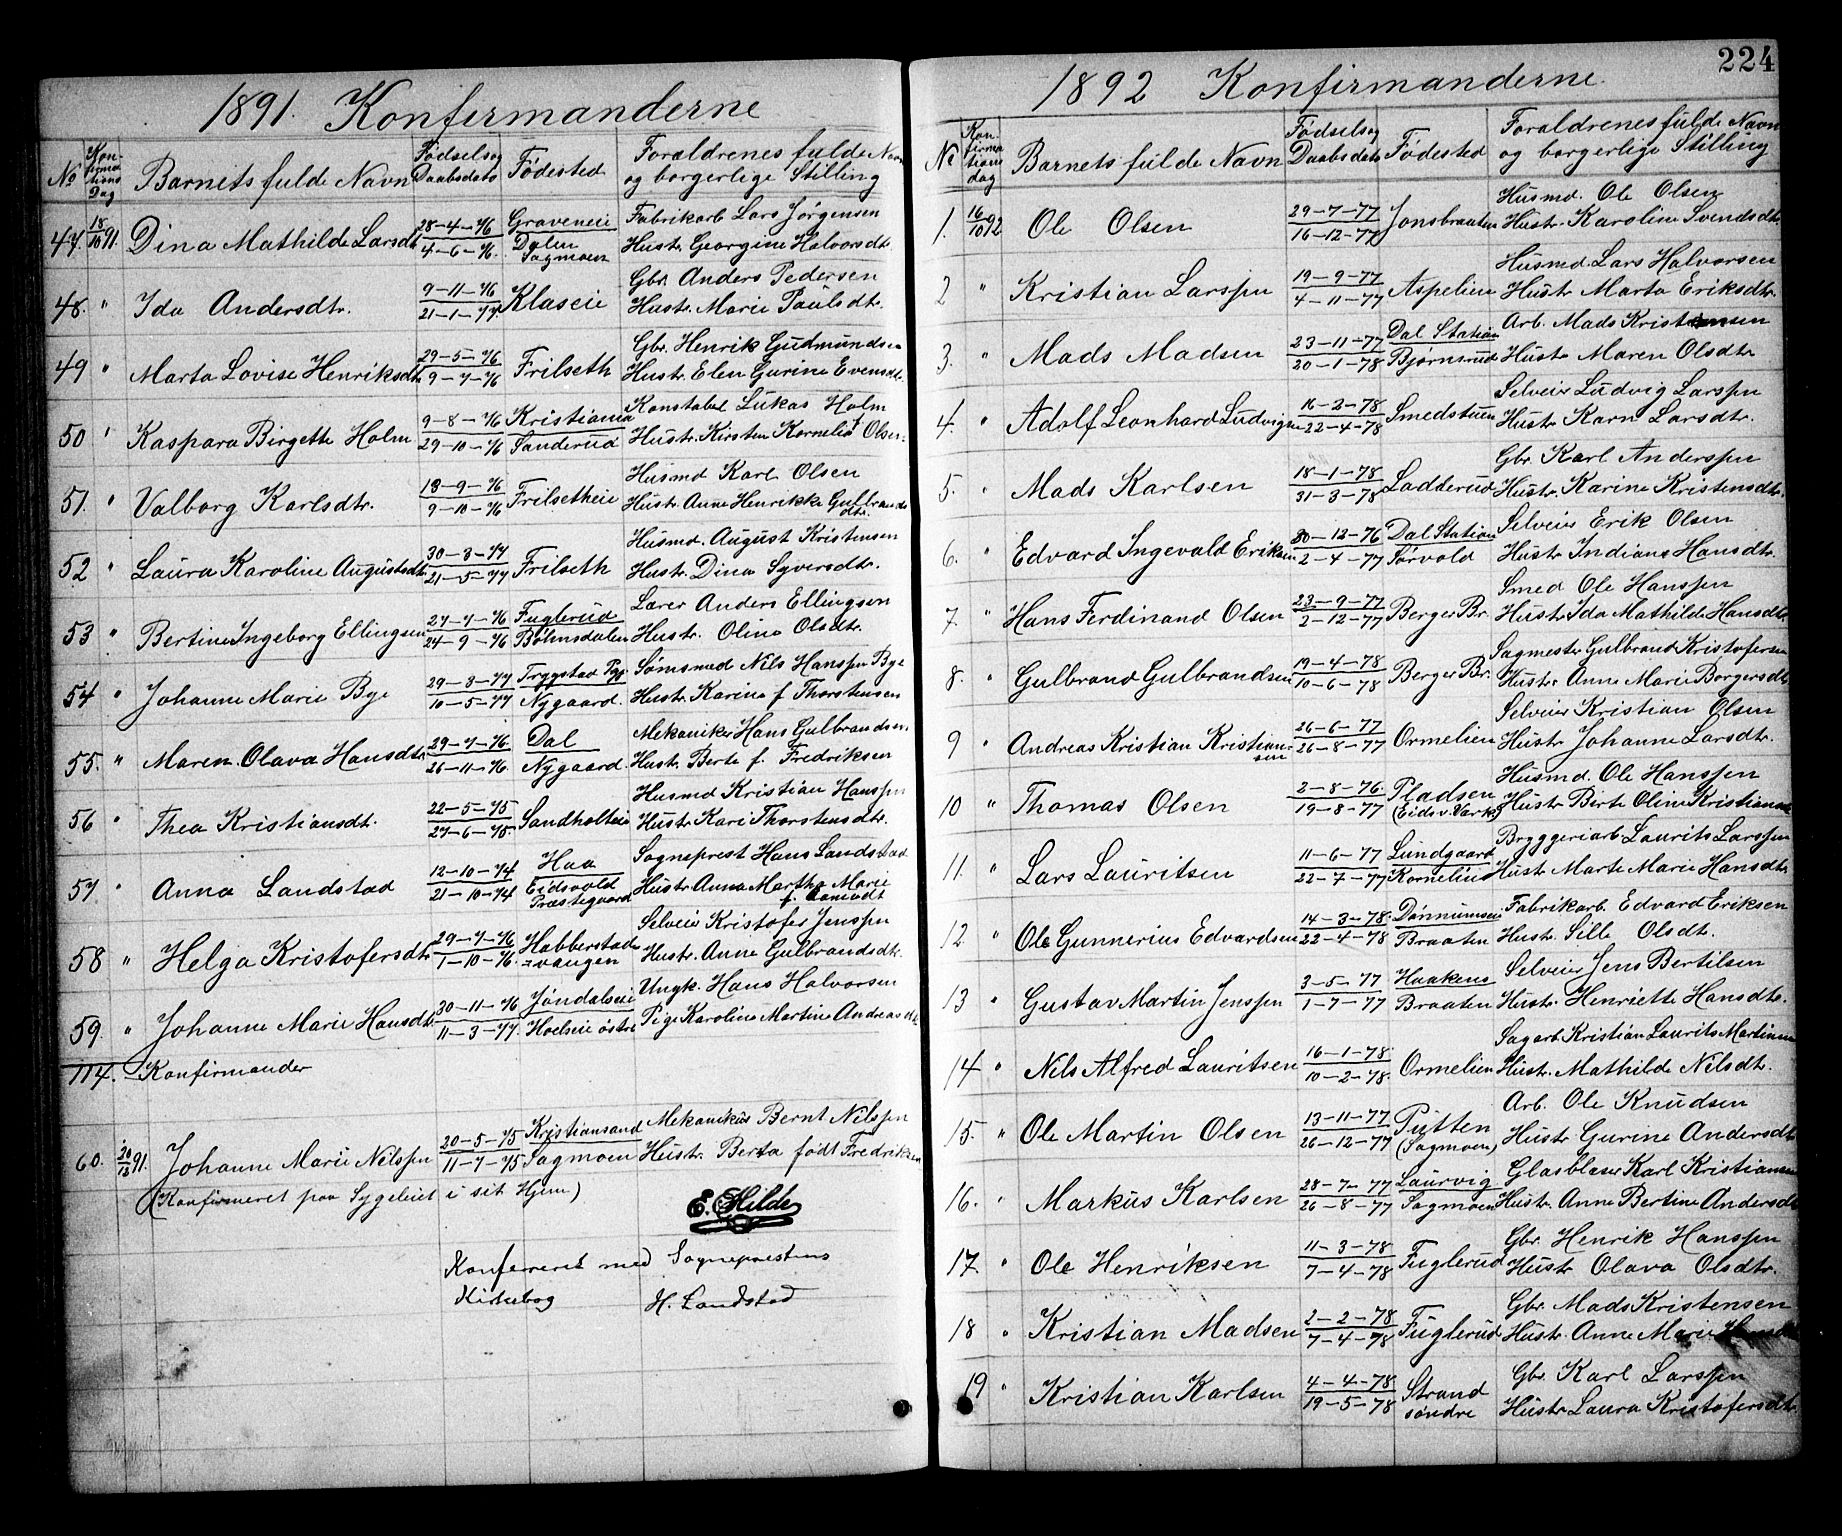 224
1891. Konfirmanderne
No Konfirmations Dag Barnets fulde Navn Fødsels og Daabsdato Fødested Foraldrenes fulde Navn og borgerlige Stilling
47. 18/10 91. Dina Mathilde Larsdt. 28-4-76 Graveneie Fabrikarb Lars Jørgensen
4-6-76. Dalen Sagmoen Hustr. Georgine Halvorsdt.
48. " Ida Andersdtr. 9-11-76 Klaseie Gbr. Anders Pedersen
21-1-77 Hustr. Marie Paulsdtr.
49 " Marta Lovise Henriksdtr 29-5-76 Frilseth Gbr. Henrik Gudmundsen
9-7-76 Hustr. Elen Gurine Evensdtr.
50 " Kaspara Birgette Holm 9-8-76 Kristiania Konstabel Lukas Holm
29-10-76 Sanderud Hustr. Kirsten Kornelia Olsen.
51. " Valborg Karlsdtr. 18-9-76 Frilsetheie Husmd Karl Olsen
9-10-76 Hustr. Anne Henrikke Gulbrandsdtr.
52 " Laura Karoline Augustsdtr 30-3-77 Frilseth Husmd. August Kristensen
21-5-77 Hustr. Dina Syversdtr.
53 " Bertine Ingeborg Ellingsen 27-7-76 Fuglerud Lærer Anders Ellingsen
24-9-76 Bøhnsdalen Hustr. Oline Olsdtr.
54 " Johanne Marie Bye 29-3-77 Trygstad Pgj. Sømsmed Nils Hanssen Bye
10-5-77 Nygaard. Hustr. Karine f. Thorstensen
55. " Maren Olava Hansdtr 29-7-76 Dal Mekaniker Hans Gulbrandsen.
26-11-76. Nygaard. Hustr. Berte f. Fredriksen
56 " Thea Kristiansdt. 22-5-75 Sandholteie Husmd Kristian Hanssen
27-6-75. Hustr. Kari Thorstensdtr.
57 " Anna Landstad 12-10-74 Haa Sogneprest Hans Landstad
21-10-74 Eidsvold Præstegaard Hustr. Anna Martha Marie f. Aamodt
58 " Helga Kristofersdtr. 29-7-76 Habberstad Selveier Kristofer Jenssen
1-10-76. =vangen Hustr. Anne Gulbrandsdtr.
59. " Johanne Marie Hansdtr. 30-11-76 Jøndalseie Ungk. Hans Halvorsen
11-3-77. Hoelseie østre Pige Karoline Martine Andreasdtr
114. Konfirmander
60. 91. Johanne Marie Nilssen 20-5-75 Kristiansand Mekanikus Bernt Nilssen
11-7-75 Sagmoen Hustr. Berta født Fredriksen
(Konfirmeret paa Sygeleiet i sit Hjem)
E. Hilde
Konfereret med Sogneprestens
Kirkebog H. Landstad
1892 Konfirmanderne.
No Konfirmations dag Barnets fulde Navn Fødsels og Daabsdato Fødested Foraldrenes fulde Navn og borgerlige Stilling
1. 16/10 92 Ole Olsen 29-7-77 Jonsbraaten Husmd. Ole Olsen
16-12-77 Hustr. Karoline Svendsdtr.
2 " Kristian Larssen 19-9-77 Aspelien Husmd. Lars Halvorsen
4-11-77 Hustr Marta Eriksdtr.
3. " Mads Madsen 23-11-77 Dal Station Arb. Mads Kristensen
20-1-78 Bjørnsrud Hustr. Maren Olsdtr
4. " Adolf Leonhard Ludvigsen 16-2-78 Smedstuen Selveier Ludvig Larssen
22-4-78 Hustr. Karn Larsdtr.
5. " Mads Karlsen 18-1-78 Ladderud Gbr. Karl Anderssen
31-3-78 Hustr. Karine Kristensdtr.
6. " Edvard Ingevald Eriksen 30-12-76 Dal Station Selveier Erik Olsen
2-4-77 Sørvold Hustr. Indiane Hansdtr.
7. " Hans Ferdinand Olsen 23-9-77 Berger Br. Smed Ole Hanssen
2-12-77 Hustr Ida Mathilde Hansdtr.
8. " Gulbrand Gulbrandsen 19-4-78 Berger Br. Sagmester Gulbrand Kristofersen
10-6-78 Hustr. Anne Marie Borgersdtr
9 " Andreas Kristian Kristiansen 26-6-77 Ormelien Selveier Kristian Olsen
26-8-77 Hustr. Johanne Larsdtr.
10 " Thomas Olsen 2-8-76. Pladsen Husmd. Ole Hanssen
19-8-77 (Eidsv. Værk) Hustr. Birte Oline Kristiansdtr
11. " Lars Lauritsen 11-6-77 Lundgaard Bryggeriarb. Laurits Larssen
22-7-77 Kornelius Hustr. Marte Marie Hansdtr.
12 " Ole Gunnerius Edvardsen 14-3-78. Dønnumseie Fabrikarb. Edvard Eriksen
22-4-78 Braaten Hustr. Sille Olsdt.
13 " Gustav Martin Jenssen 3-5-77 Haakens Selveier Jens Bertilsen
1-7-77 Braaten Hustr. Henriette Hansdtr.
14 " Nils Alfred Lauritsen 16-1-78. Ormelien Sagarb. Kristian Laurits Martinsen
10-2-78. Hustr. Mathilde Nilsdtr.
15. " Ole Martin Olsen 13-11-77 Putten Arb. Ole Knudsen
26-12-77 (Sagmoen) Hustr. Gurine Andersdtr
16. " Markus Karlsen 28-7-77 Laurvig Glasblaser Karl Kristiansen
26-8-77 Sagmoen Hustr. Anne Bertine Andersdtr
17. " Ole Henriksen 11-3-78 Fuglerud Gbr. Henrik Hanssen
7-4-78 Hustr Olava Olsdtr.
18 " Kristian Madsen 2-2-78 Fuglerud Gbr. Mads Kristensen
7-4-78 Hustr. Anne Marie
19 " Kristian Karlsen 4-4-78 Strand Gbr. Karl Larssen
19-5-78 søndre Hustr Laura Kristofersdtr.